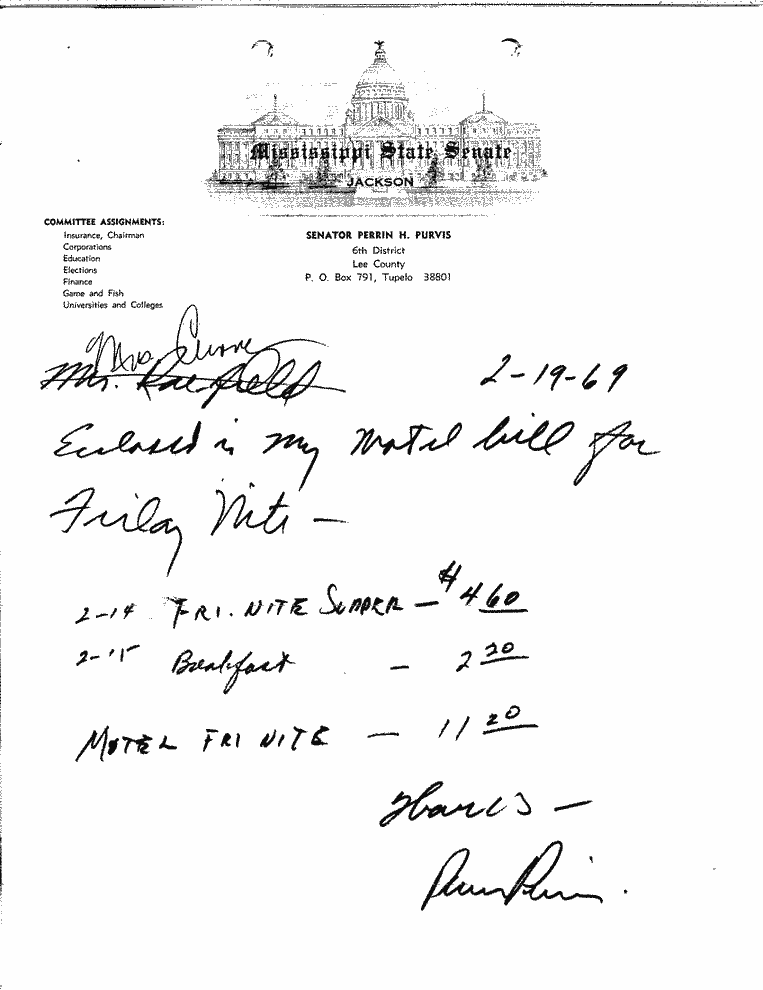 Mississippi State Senate
JACKSON
COMMITTEE ASSIGNMENTS:
Insurance, Chairman
Corporations
Education
Elections
Finance
Game and Fish
Universities and Colleges
SENATOR PERRIN H. PURVIS
6th District
Lee County
P. O. Box 791, Tupelo 38801
Mrs.
Mr.
2-19-69
Enclosed is my Motel bill for
Friday Nite -
2-14 FRI. NITE SUPPER - $4 60
2-15 Breakfast - 2 20
MOTEL FRI NITE - 11 20
Thanks -
Perrin Purvis.